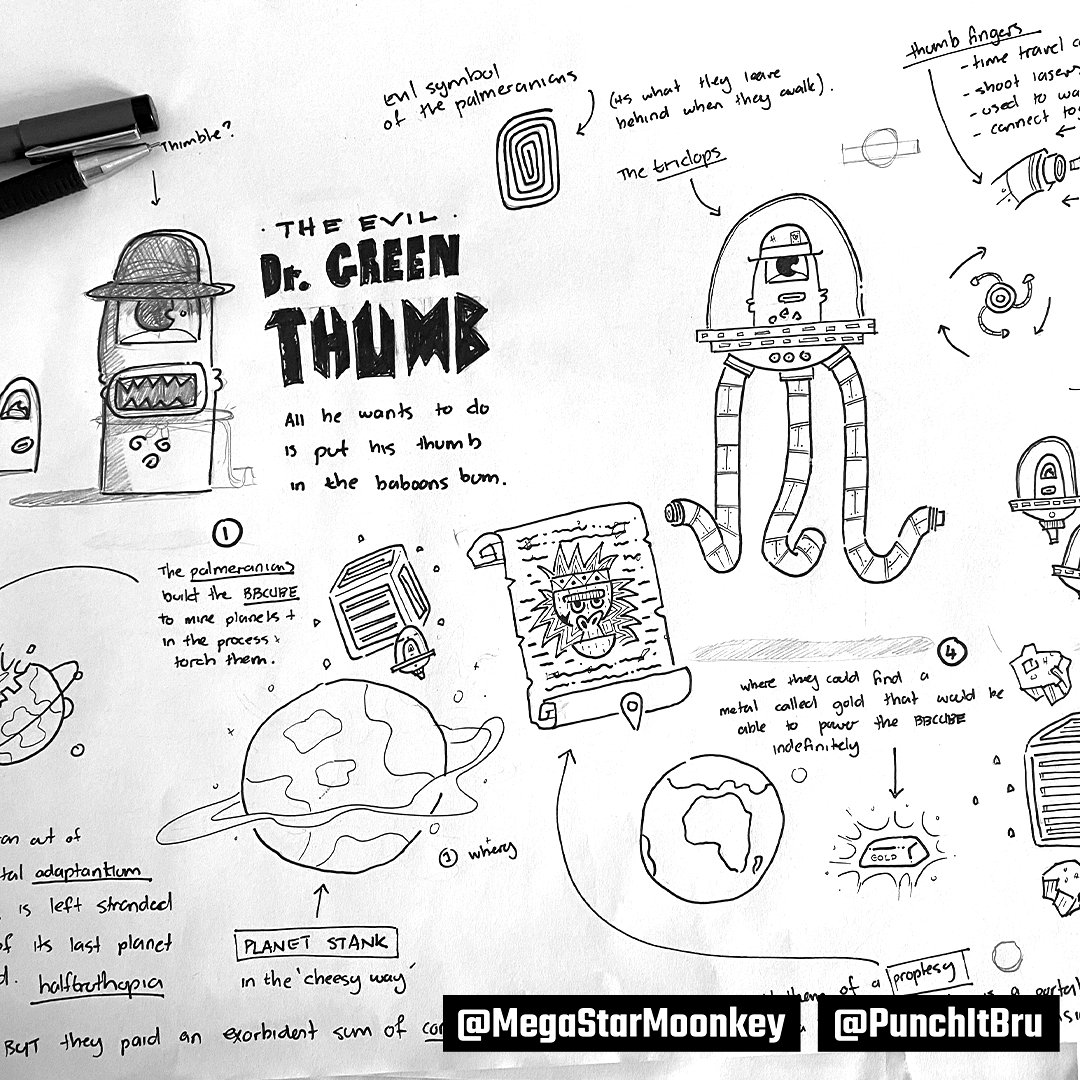 thumb fingers
- time travel
- shoot lasers
- used to
- connect
evil symbol
of the palmeranians
(its what they leave
behind when they walk).
Thimble?
The triclops
· THE EVIL ·
Dr. GREEN
THUMB
All he wants to do
is put his thumb
in the baboons bum.
1
The palmeranians
build the BBCUBE
to mine planets +
in the process +
torch them.
4
where they could find a
metal called gold that would be
able to power the BBCUBE
indefinitely
GOLD
1 where
PLANET STANK
in the 'cheesy way'
an out of
tal adaptantium
is left stranded
of its last planet
d. halfbathopia
BUT they paid an exorbident sum of
of a prophesy
is a portal
@MegaStarMoonkey
@PunchItBru